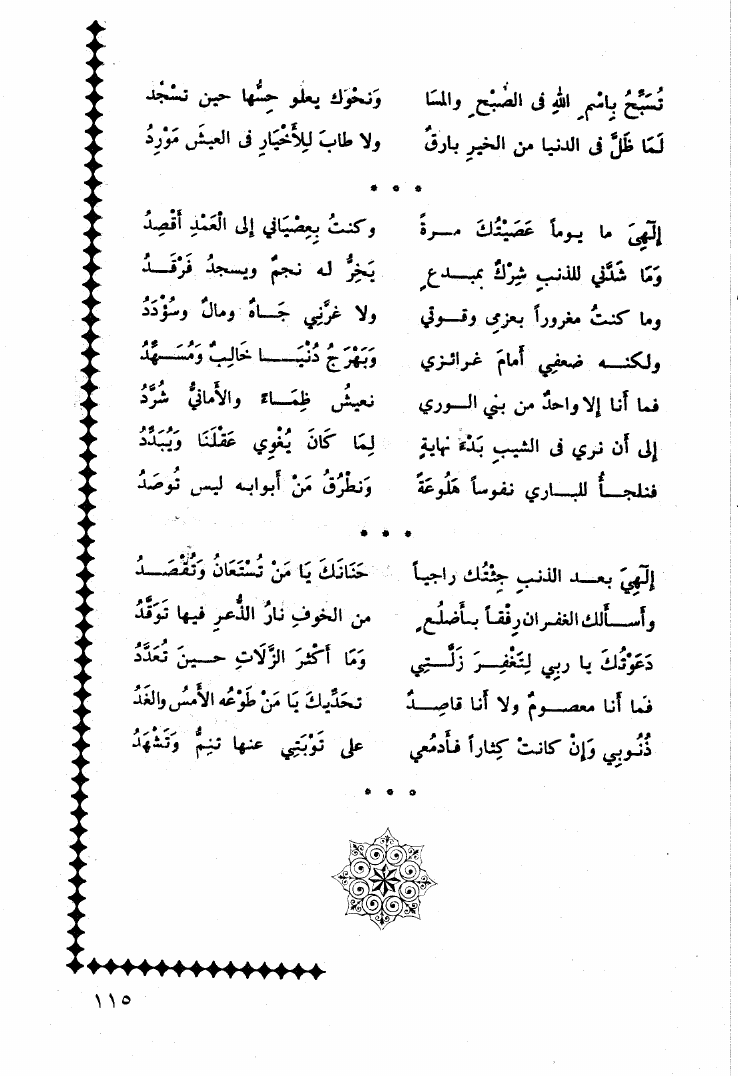 تُسَبِّحُ بِاسْمِ اللهِ فى الصُّبْحِ والمَسَا وَنَحْوَكَ يعلو حِسُّها حين تسْجُد
لَمَا ظَلَّ فى الدنيا من الخيرِ بارقٌ ولا طابَ لِلأَخْيَارِ فى العيشِ مَوْرِدُ
* * *
إلَهِيَ ما يوماً عَصَيْتُكَ مرةً وكنتُ بِعِصْيَاني إلى الْعَمْدِ أَقْصِدُ
وَمَا شَدَّني للذنبِ شِرْكٌ بمبدعٍ يَخِرُّ له نجمٌ ويسجدُ فَرْقَدُ
وما كنتُ مغروراً بعزمى وقوتي ولا غرَّنِي جَاهٌ ومالٌ وسُؤْدَدُ
ولكنه ضعفِي أمامَ غرائزي وَبَهْرَجُ دُنْيَا خَالِبٌ وَمُسَهَّدُ
فما أنا إلا واحدٌ من بنِي الوري نعيشُ ظِمَاءً والأمانيُّ شُرَّدُ
إلى أن نري فى الشيبِ بَدْءَ نهايةٍ لِمَا كَانَ يُغْوِي عَقْلَنَا وَيُبَدِّدُ
فنلجأُ للباري نفوساً هَلُوعَةً وَنطْرُقُ مَنْ أبوابه ليس تُوصَدُ
* * *
إلَهِيَ بعد الذنبِ جِئْتُك راجياً حَنَانَكَ يَا مَنْ تُسْتَعَانُ وَتُقْصَدُ
وأسألك الغفران رِفْقاً بأضلُعٍ من الخوفِ نارُ الذُّعرِ فيها تَوَقَّدُ
دَعَوْتُكَ يا ربي لِتَغْفِرَ زَلَّتِي وَمَا أَكْثَرَ الزَّلَاتِ حينَ تُعَدَّدُ
فَما أنا معصومٌ ولا أنا قاصدٌ تحَدِّيكَ يَا مَنْ طَوْعُه الأمسُ والغَدُ
ذُنُوبِي وَإنْ كانتْ كِثاراً فأدمُعي على تَوْبَتِي عنها تنِمُّ وَتَشْهَدُ
* * *
١١٥